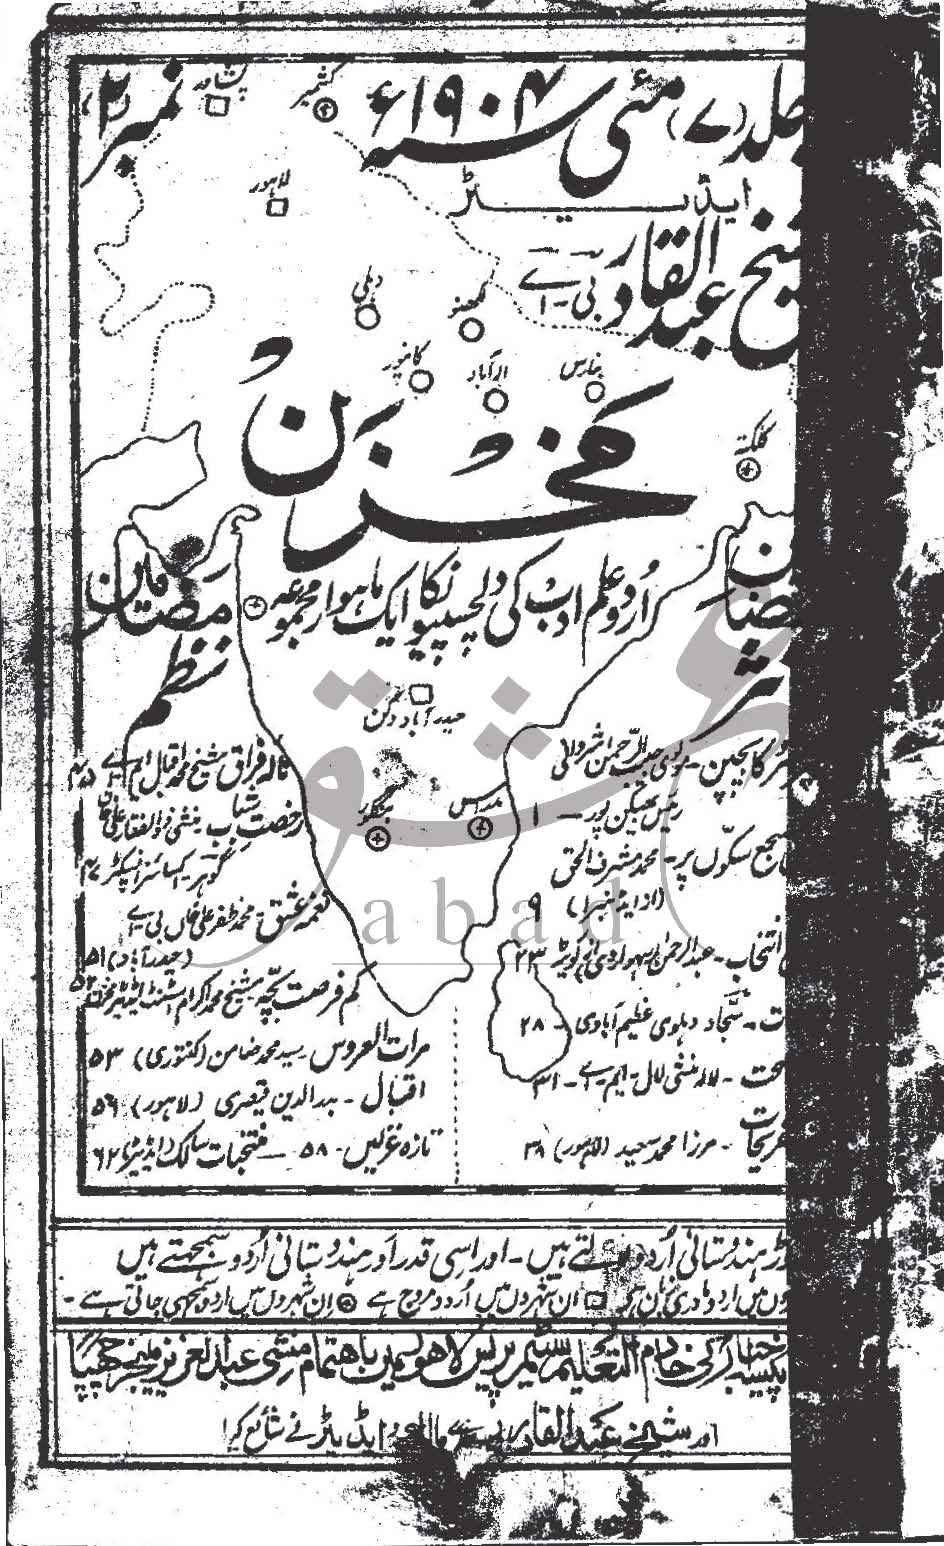 جلد (۷) مئی سنہ ۱۹۰۴ء نمبر (۲)
پشاور
کشمیر
لاہور
ایڈیٹر
شیخ عبدالقادر بی۔اے
دہلی
لکھنؤ
کانپور
الہ آباد
بنارس
کلکتہ
مخزن
اُردو علم ادب کی دلچسپیوں کا ایک ماہوار مجموعہ
حیدرآباد دکن
بنگلور
مدراس
نثر
کا بچپن۔ مولوی حبیب الرحمن شروانی
رئیس بھیکن پور — ۱
سجع سکّوں پر۔ محمد مشرف الحق
۹
انتخاب۔ عبدالرحمٰن ۲۳
سجّاد دہلوی عظیم آبادی ۔ ۲۸
لالہ منشی لال۔ ایم۔اے ۔ ۳۱
مرزا محمد سعید (لاہور) ۳۸
مضامین
نظم
نالۂ فراق شیخ محمد اقبال ایم۔اے ۴۵
رخصت شباب۔ منشی ذوالفقار علی خاں
گوہر۔ اکسائز انسپکٹر
نغمۂ عشق۔ محمد ظفر علی خاں بی۔اے
(حیدرآباد) ۵۱
کم فرصت بچّہ شیخ محمد اکرام اسسٹنٹ ایڈیٹر مخزن ۵۲
مرات العروس سید محمد ضامن (کنتوری) ۵۳
اقبال۔ بدرالدین قیصری (لاہور) ۵۶
تازہ غزلیں۔ ۵۸ — منتخبات سالک (ایڈیٹر) ۶۲
ہندُستانی اُردو بولتے ہیں۔ اور اِسی قدر اَور ہندُستانی اُردو سمجھتے ہیں
میں اردو مادری زبان ہے ان شہروں میں اُردو مروج ہے اِن شہروں میں اردو سمجھی جاتی ہے۔
پیسہ اخبار کی خادم التعلیم سٹیم پریس لاہور میں باہتمام منشی عبدالعزیز مینیجر چھپا
اور شیخ عبدالقادر بی۔اے ایڈیٹر نے شائع کیا
عشق
abad